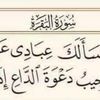 سُورَةُ البَقَرَةِ
سَأَلَكَ عِبَادِى عَ
جِيبُ دَعْوَةَ ٱلدَّاعِ إِ